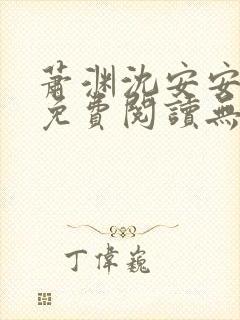 蕭淵沈安安
免費閱讀無
丁偉巍